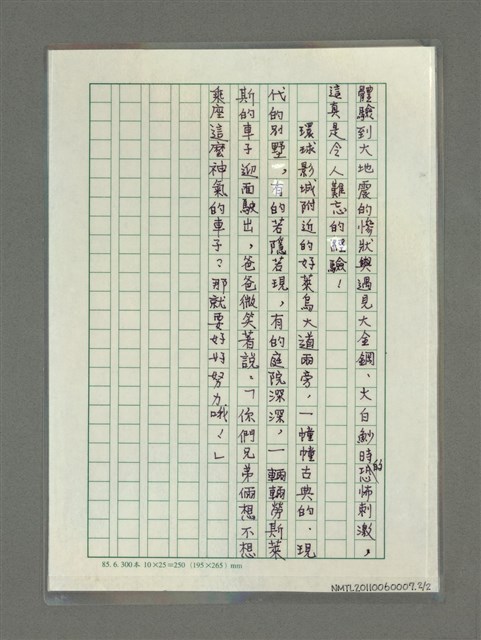 體驗到大地震的慘狀與遇見大金鋼、大白鯊時的恐怖刺激，
這真是令人難忘的經驗！
環球影城附近的好萊烏大道兩旁，一幢幢古典的、現
代的別墅，有的若隱若現，有的庭院深深，一輛輛勞斯萊
斯的車子迎面駛出，爸爸微笑著說：「你們兄弟倆想不想
乘座這麼神氣的車子？那就要好好努力哦！」
85. 6. 300本 10×25=250 (195×265) mm
NMTL20110060007.2/2